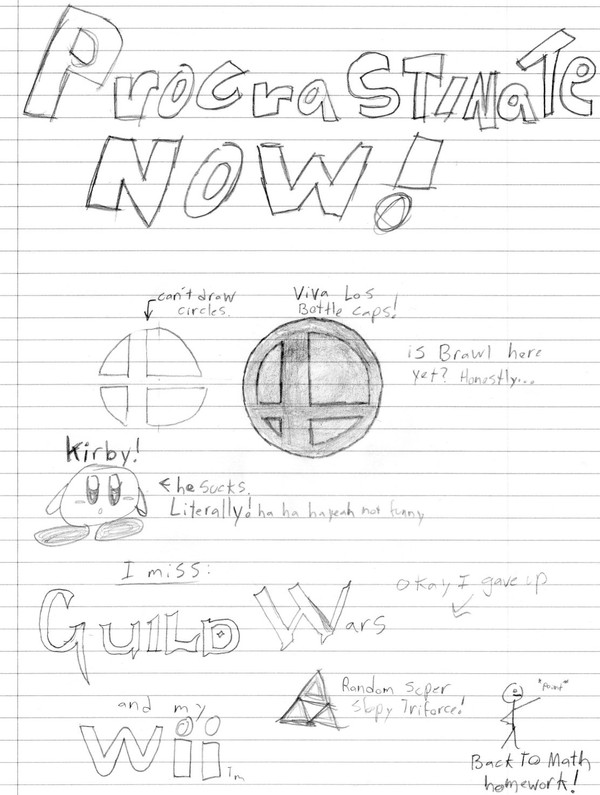 Procrastinate
Now!
can't draw
circles.
Viva Los
Bottle Caps!
is Brawl here
yet? Honestly...
Kirby!
he sucks.
Literally! ha ha ha yeah not funny
I miss:
Guild Wars
okay I gave up
and my
Wii™
Random Super
Sloppy Triforce!
"Point"
Back To Math
homework!